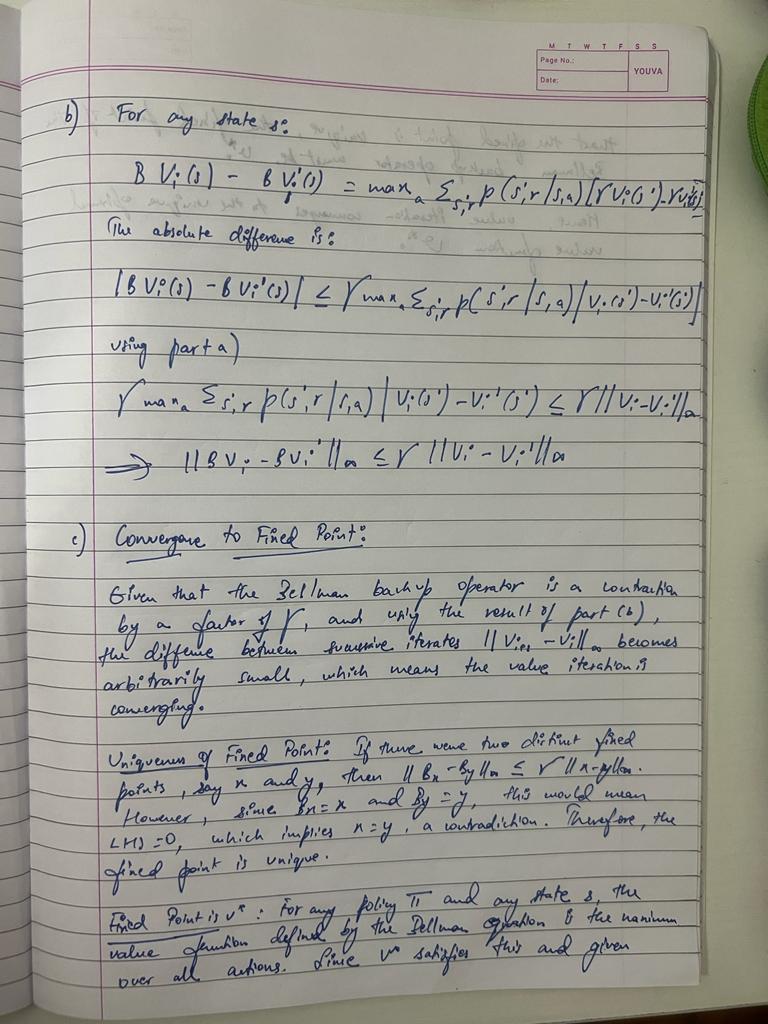 M T W T F S S
Page No.:
YOUVA
Date:
b) For any state s:
B Vi(s) - B Vi'(s) = max_a Σ_{s',r} p(s',r|s,a) [γVi(s') - γVi'(s')]
The absolute difference is:
|B Vi(s) - B Vi'(s)| ≤ γ max_a Σ_{s',r} p(s',r|s,a) |Vi(s') - Vi'(s')|
using part a)
γ max_a Σ_{s',r} p(s',r|s,a) |Vi(s') - Vi'(s') ≤ γ||Vi - Vi'||∞
⟹ ||B Vi - B Vi'||∞ ≤ γ ||Vi - Vi'||∞
c) Convergance to Fixed Point:
Given that the Bellman backup operator is a contraction
by a factor of γ, and using the result of part (b),
the diffence between successive iterates ||Vi+1 - Vi||∞ becomes
arbitrarily small, which means the value iteration is
converging.
Uniqueness of Fixed Point: If there were two distinct fixed
points, say x and y, then ||Bx - By||∞ ≤ γ ||x-y||∞.
However, since Bx = x and By = y, this would mean
LHS = 0, which implies x = y, a contradiction. Therefore, the
fixed point is unique.
Fixed Point is v*: For any policy π and any state s, the
value function defined by the Bellman equation is the maximum
over all actions. Since v* satisfies this and given